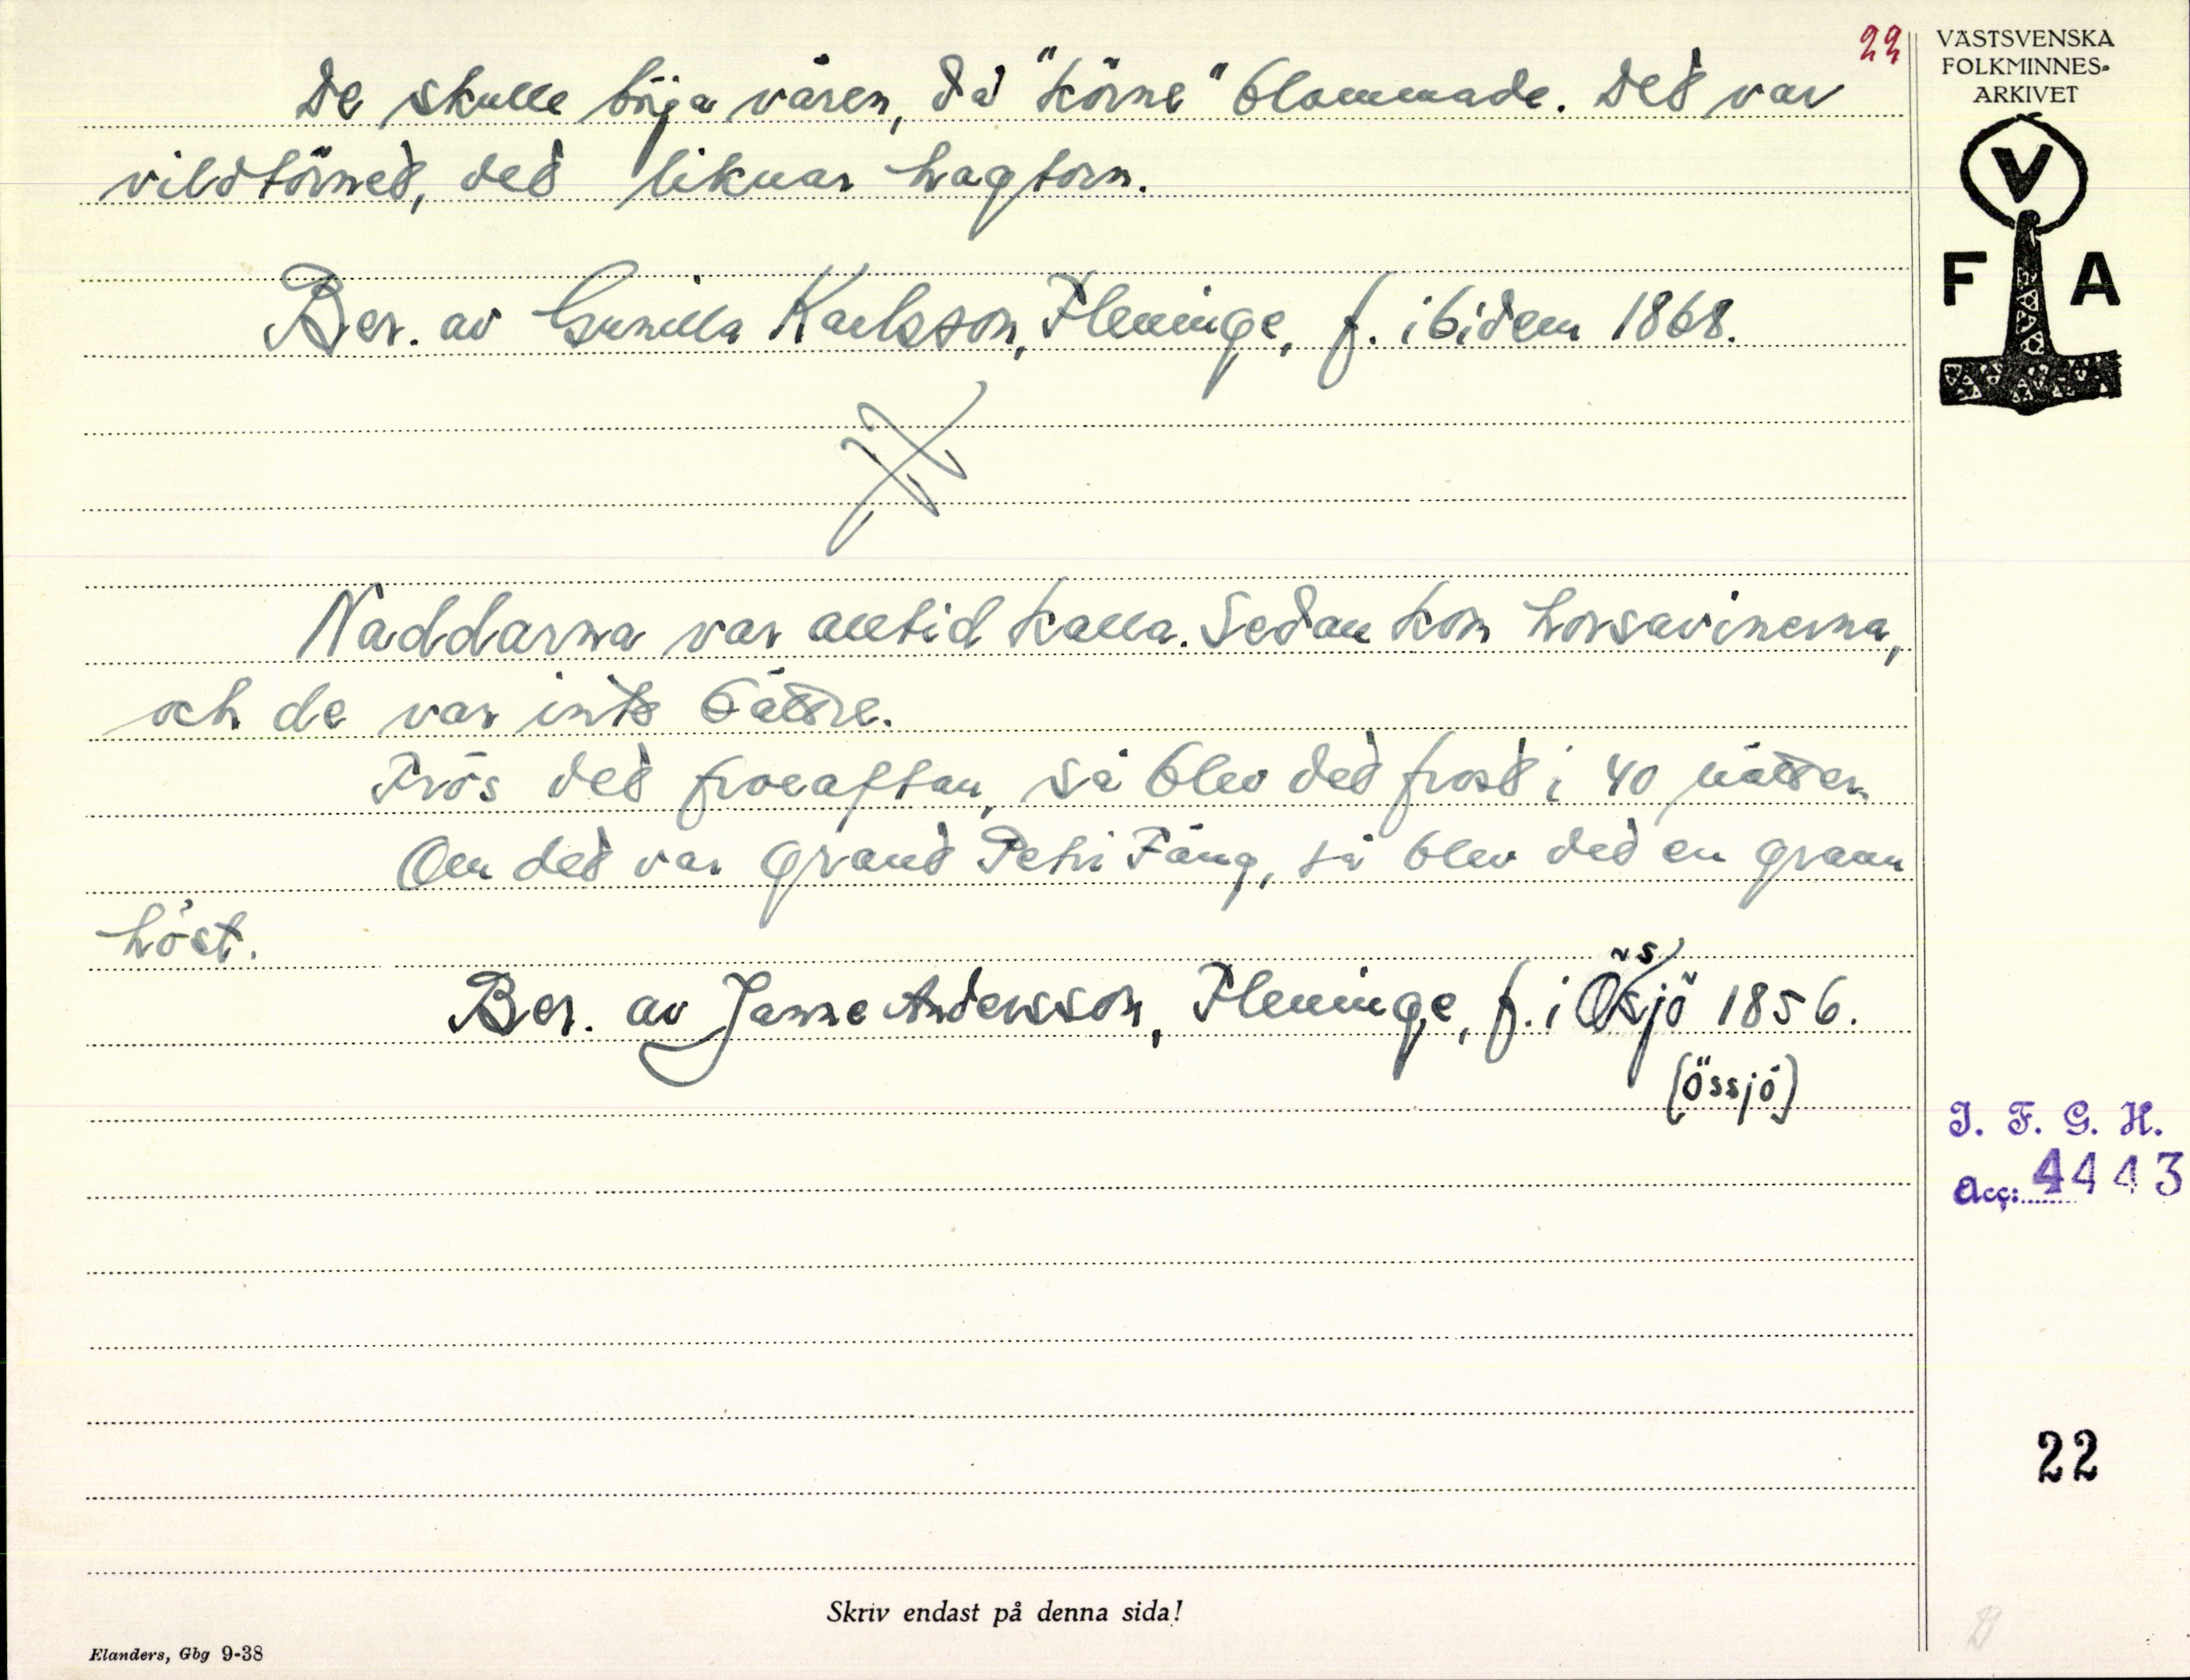 22
VÄSTSVENSKA
FOLKMINNES-
ARKIVET
V
F A
De skulle börja våren, då "törne" blommade. Det var
vildtörnet, det liknar hagtorn.
Ber. av Gunilla Karlsson, Fleninge, f. ibidem 1868.
Naddarna var alltid kalla. Sedan kom horsavinerna,
och de var inte bättre.
Frös det froeaftan, så blev det frost i 40 nätter.
Om det var grant Petri Fäng, så blev det en grann
höst.
Ber. av Janne Andersson, Fleninge, f. i Össjö 1856.
(Össjö)
I. F. G. H.
Acc: 4443
22
Skriv endast på denna sida!
Elanders, Gbg 9-38